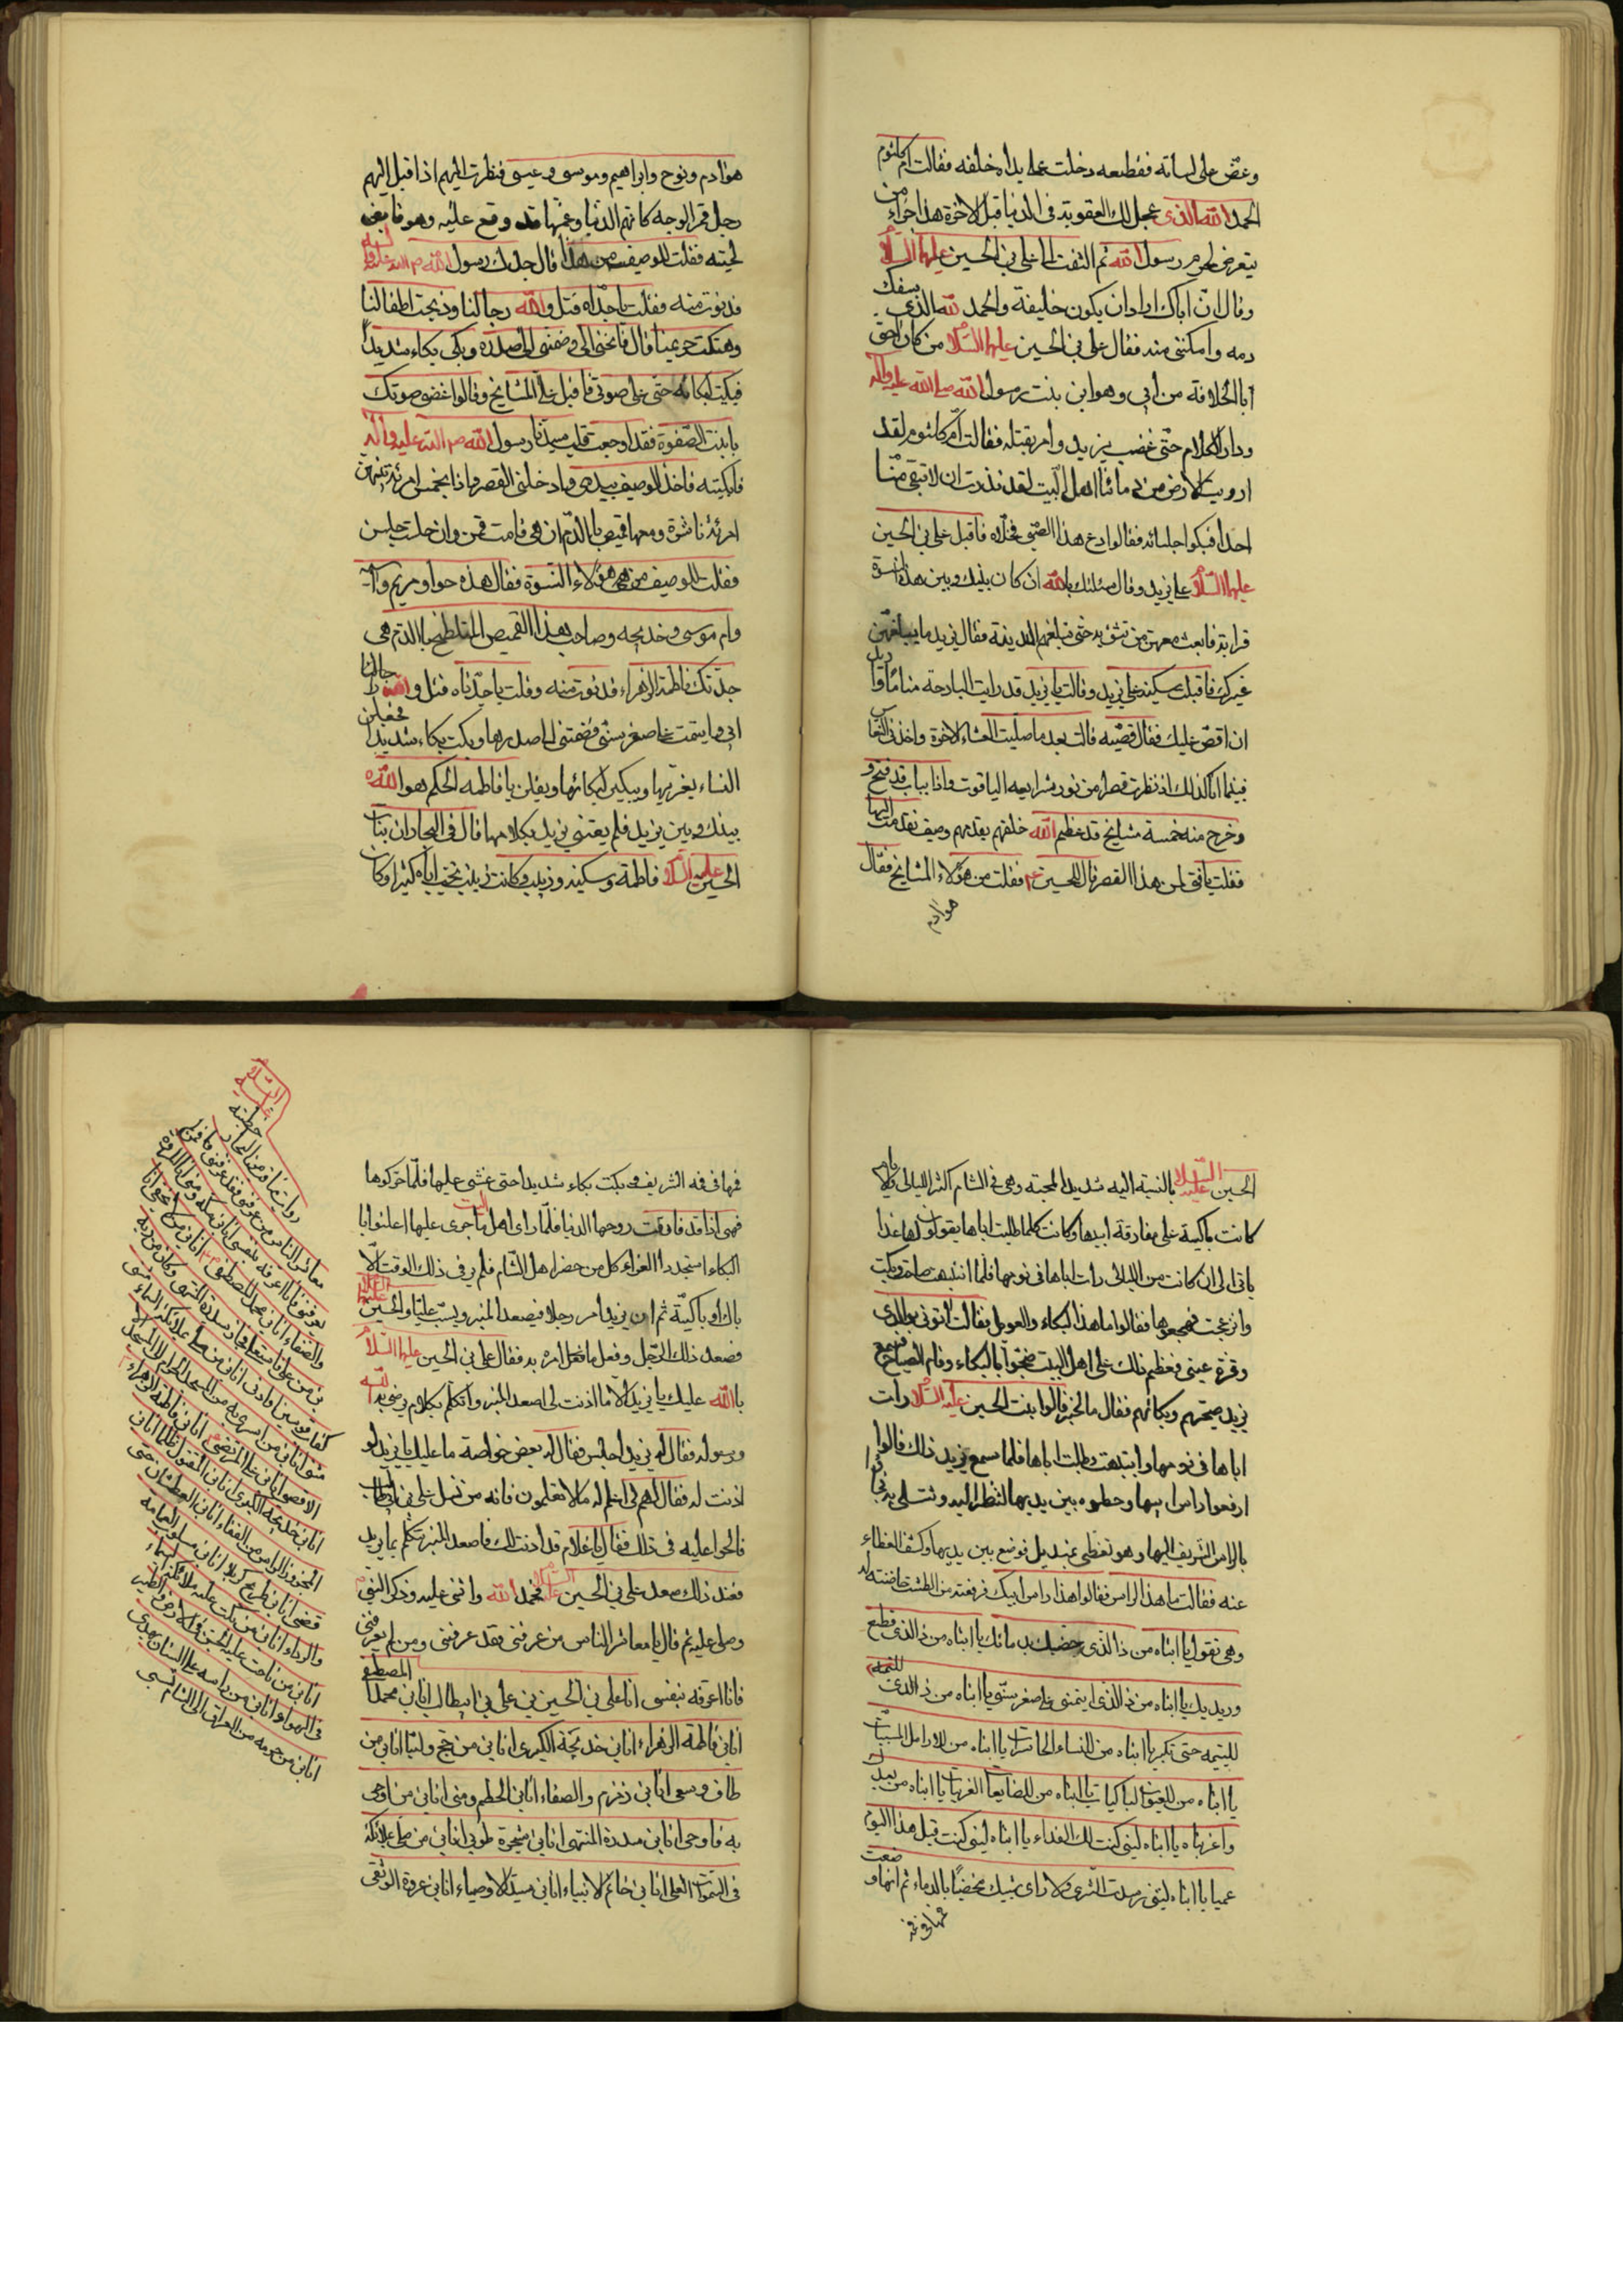 وعض على لسانه فقطعه دخلت عمايداه خلفه فقالت ام كلثوم
الحمد لله الذى عجل لك العقوبة فى الدنيا قبل الاخرة هذا جزاء من
يتعرض لحرم رسول الله ثم التفت الى على بن الحسين عليهما السلام
وقال ان اباك اراد ان يكون خليفة والحمد لله الذى سفك
دمه وامكننى منه فقال على بن الحسين عليهما السلام من كان احق
بالخلافة من ابى وهو ابن بنت رسول الله صلى الله عليه واله
ودار الكلام حتى غضب يزيد وامر بقتله فقالت ام كلثوم لقد
ارويت الارض من دمائنا اهل البيت لقد نذرت ان لا تبقى منا
احدا فبكوا جلسائه فقالوا دع هذا الصبى فخلاه فاقبل على بن الحسين
عليهما السلام على يزيد وقال سئلتك بالله ان كان بينك وبين هذه النسوة
قرابة فابعث معهن من تثق به حتى تبلغهم المدينة فقال يزيد ما يبلغهن
غيرك فاقبلت سكينة على يزيد وقالت يا يزيد قد رايت البارحة مناما
ان اقص عليك فقال قصيه قالت بعد ما صليت العشاء الاخرة واخذنى النعاس
فبينما انا كذلك اذ نظرت قصرا من نور شرايعه الياقوت واذا بباب قد فتح و
وخرج منه خمسة مشايخ قد عظم الله خلقهم يقدمهم وصيف فتقدمت اليها
فقلت يا فتى لمن هذا القصر قال للحسين ع فقلت من هؤلاء المشايخ فقال
هو ادم
هو ادم ونوح وابراهيم وموسى وعيسى فنظرت اليهم اذا قبل اليهم
رجل قمر الوجه كانهم الدنيا وغمها قد وقع عليه وهو قابض
لحيته فقلت للوصيف من هذا قال جدك رسول الله صلى الله عليه واله
فدنوت منه وقلت يا جداه قتل والله رجالنا وذبحت اطفالنا
وهتكت حريمنا قال فانحنى الى وضمنى الى صدره وبكى بكاء شديدا
فبكيت لبكائه حتى على صوتى فاقبل على المشايخ وقالوا اغضى صوتك
يا بنت الصفوة فقد اوجعت قلب سيدنا رسول الله صلى الله عليه واله
فابكيته فاخذ الوصيف بيدى وادخلنى القصر واذا بخمس امرئة بينهن
امرئة ناشرة ومعها قميص بالدم ان هى قامت قمن وان جلست جلسن
فقلت للوصيف من هى هؤلاء النسوة فقال هذه حوا ومريم واسية
وام موسى وخديجه وصاحب هذا القميص الملطخ بالدم هى
جدتك فاطمة الزهراء فدنوت منه وقلت يا جدتاه قتل والله رجالنا
ابى وايتمت على صغر سنى فضمتنى الى صدرها وبكت بكاء شديدا فجعلن
النساء يعزيها ويبكين لبكائها ويقلن يا فاطمه الحكم هو الله
بينك وبين يزيد فلم يعتنى يزيد بكلامها قال فى البحار ان بنات
الحسين عليه السلام فاطمة وسكينه وزينب وكانت زينب تحب اباه كثيرا وكان
الحسين عليه السلام بالنسبة اليه شديد المحبة وهى فى الشام اكثر الليالى والايام
كانت باكية على مفارقة ابيها وكانت كلما طلبت اباها يقولون لها غدا
ياتى الى ان كانت من الليالى رات اباها فى نومها فلما انتبهت صاحت وبكت
وانزعجت فقالوا ما هذا البكاء والعويل فقالت اتونى بوالدى
وقرة عينى فعظم ذلك على اهل البيت فضجوا بالبكاء وقام الصياح فسمع
يزيد صيحتهم وبكائهم فقال ما الخبر قالوا بنت الحسين عليه السلام رات
اباها فى نومها وانتبهت وطلبت اباها فلما سمع يزيد ذلك قالوا
ارفعوا راس ابيها وحطوه بين يديها لتنظر اليه وتتسلى به فجاؤا
بالراس الشريف اليها وهو مغطى بمنديل فوضع بين يديها وكشف الغطاء
عنه فقالت ما هذا الراس فقالوا هذا راس ابيك فرفعته من الطشت حاضنته له
وهى تقول يا ابتاه من ذا الذى خضبك بدمائك يا ابتاه من ذا الذى قطع
وريديك يا ابتاه من ذا الذى ايتمنى على صغر سنى يا ابتاه من ذا الذى
لليتيمه حتى تكبر يا ابتاه من للنساء الحاسرات يا ابتاه من للارامل المسبيات
يا ابتاه من للعيون الباكيات يا ابتاه من للضايعات الغريبات يا ابتاه من بعدك
واغربتاه يا ابتاه ليتنى كنت لك الفداء يا ابتاه ليتنى كنت قبل هذا اليوم
عميا يا ابتاه ليتنى وسدت الثرى ولا ارى شيبك مخضبا بالدماء ثم انها وضعت
فمها فى فمه
فمها فى فمه الشريف وبكت بكاء شديدا حتى غشى عليها فلما حركوها
فهى اذا قد فارقت روحها الدنيا فلما راى اهل البيت ما جرى عليها اعلنوا با
البكاء استجددا العزاء كل من حضر اهل الشام فلم ير فى ذلك الوقت الا
باك او باكية ثم ان يزيد امر رجلا فيصعد المنبر ويسب عليا والحسين عليهما السلام
فصعد ذلك الرجل وفعل ما فعل امره به فقال على بن الحسين عليهما السلام
بالله عليك يا يزيد الا ما اذنت لى اصعد المنبر واتكلم بكلام يرضى به الله
ورسوله فقال له يزيد اجلس فقال له بعض خواصه ما عليك يا يزيد لو
اذنت له فقال لهم انى اعلم له ما لا تعلمون فانه من نسل على بن ابى طالب
فالحوا عليه فى ذلك فقال يا غلام قد اذنت لك فاصعد المنبر تكلم بما تريد
فعند ذلك صعد على بن الحسين عليه السلام فحمد الله واثنى عليه وذكر النبى
وصلى عليه ثم قال يا معاشر الناس من عرفنى فقد عرفنى ومن لم يعرفنى
فانا اعرفه بنفسى انا على بن الحسين بن على بن ابيطالب انا ابن محمد المصطفى
انا بن فاطمة الزهراء انا بن خديجة الكبرى انا بن من حج ولبى انا بن من
طاف وسعى انا بن زمزم والصفاء انا بن الحطيم ومنى انا بن من اوحى
به فاوحى انا بن سدرة المنتهى انا بن شجرة طوبى انا بن من صلى بملائكة
فى السموات العلى انا بن خاتم الانبياء انا بن سيد الاوصياء انا بن عروة الوثقى
السلام
عليه
خطبته
روايتها فى من البحار
معاشر الناس من عرفنى فقد عرفنى ومن لم
يعرفنى فانا اعرفه بنفسى انا بن مكه ومنى انا بن المروة
والصفاء انا بن محمد المصطفى انا بن من لا يخفى انا
بن من علا فاستعلا فجاز سدرة المنتهى وكان من ربه
كقاب قوسين او ادنى انا بن من صلى بملائكة السماء مثنى
مثنى انا بن من اسرى به من المسجد الحرام الى المسجد
الاقصى انا بن على المرتضى انا بن فاطمة الزهراء
انا بن خديجه الكبرى انا بن المقتول ظلما انا بن
المجزوز الراس من القفاء انا بن العطشان حتى
قضى انا بن طريح كربلا انا بن مسلوب العمامه
والرداء انا بن من بكت عليه ملائكة السماء
انا بن من ناحت عليه الجن فى الارض والطير
فى الهوا انا بن من راسه على السنان يهدى
انا بن من حرمه من العراق الى الشام تسبى